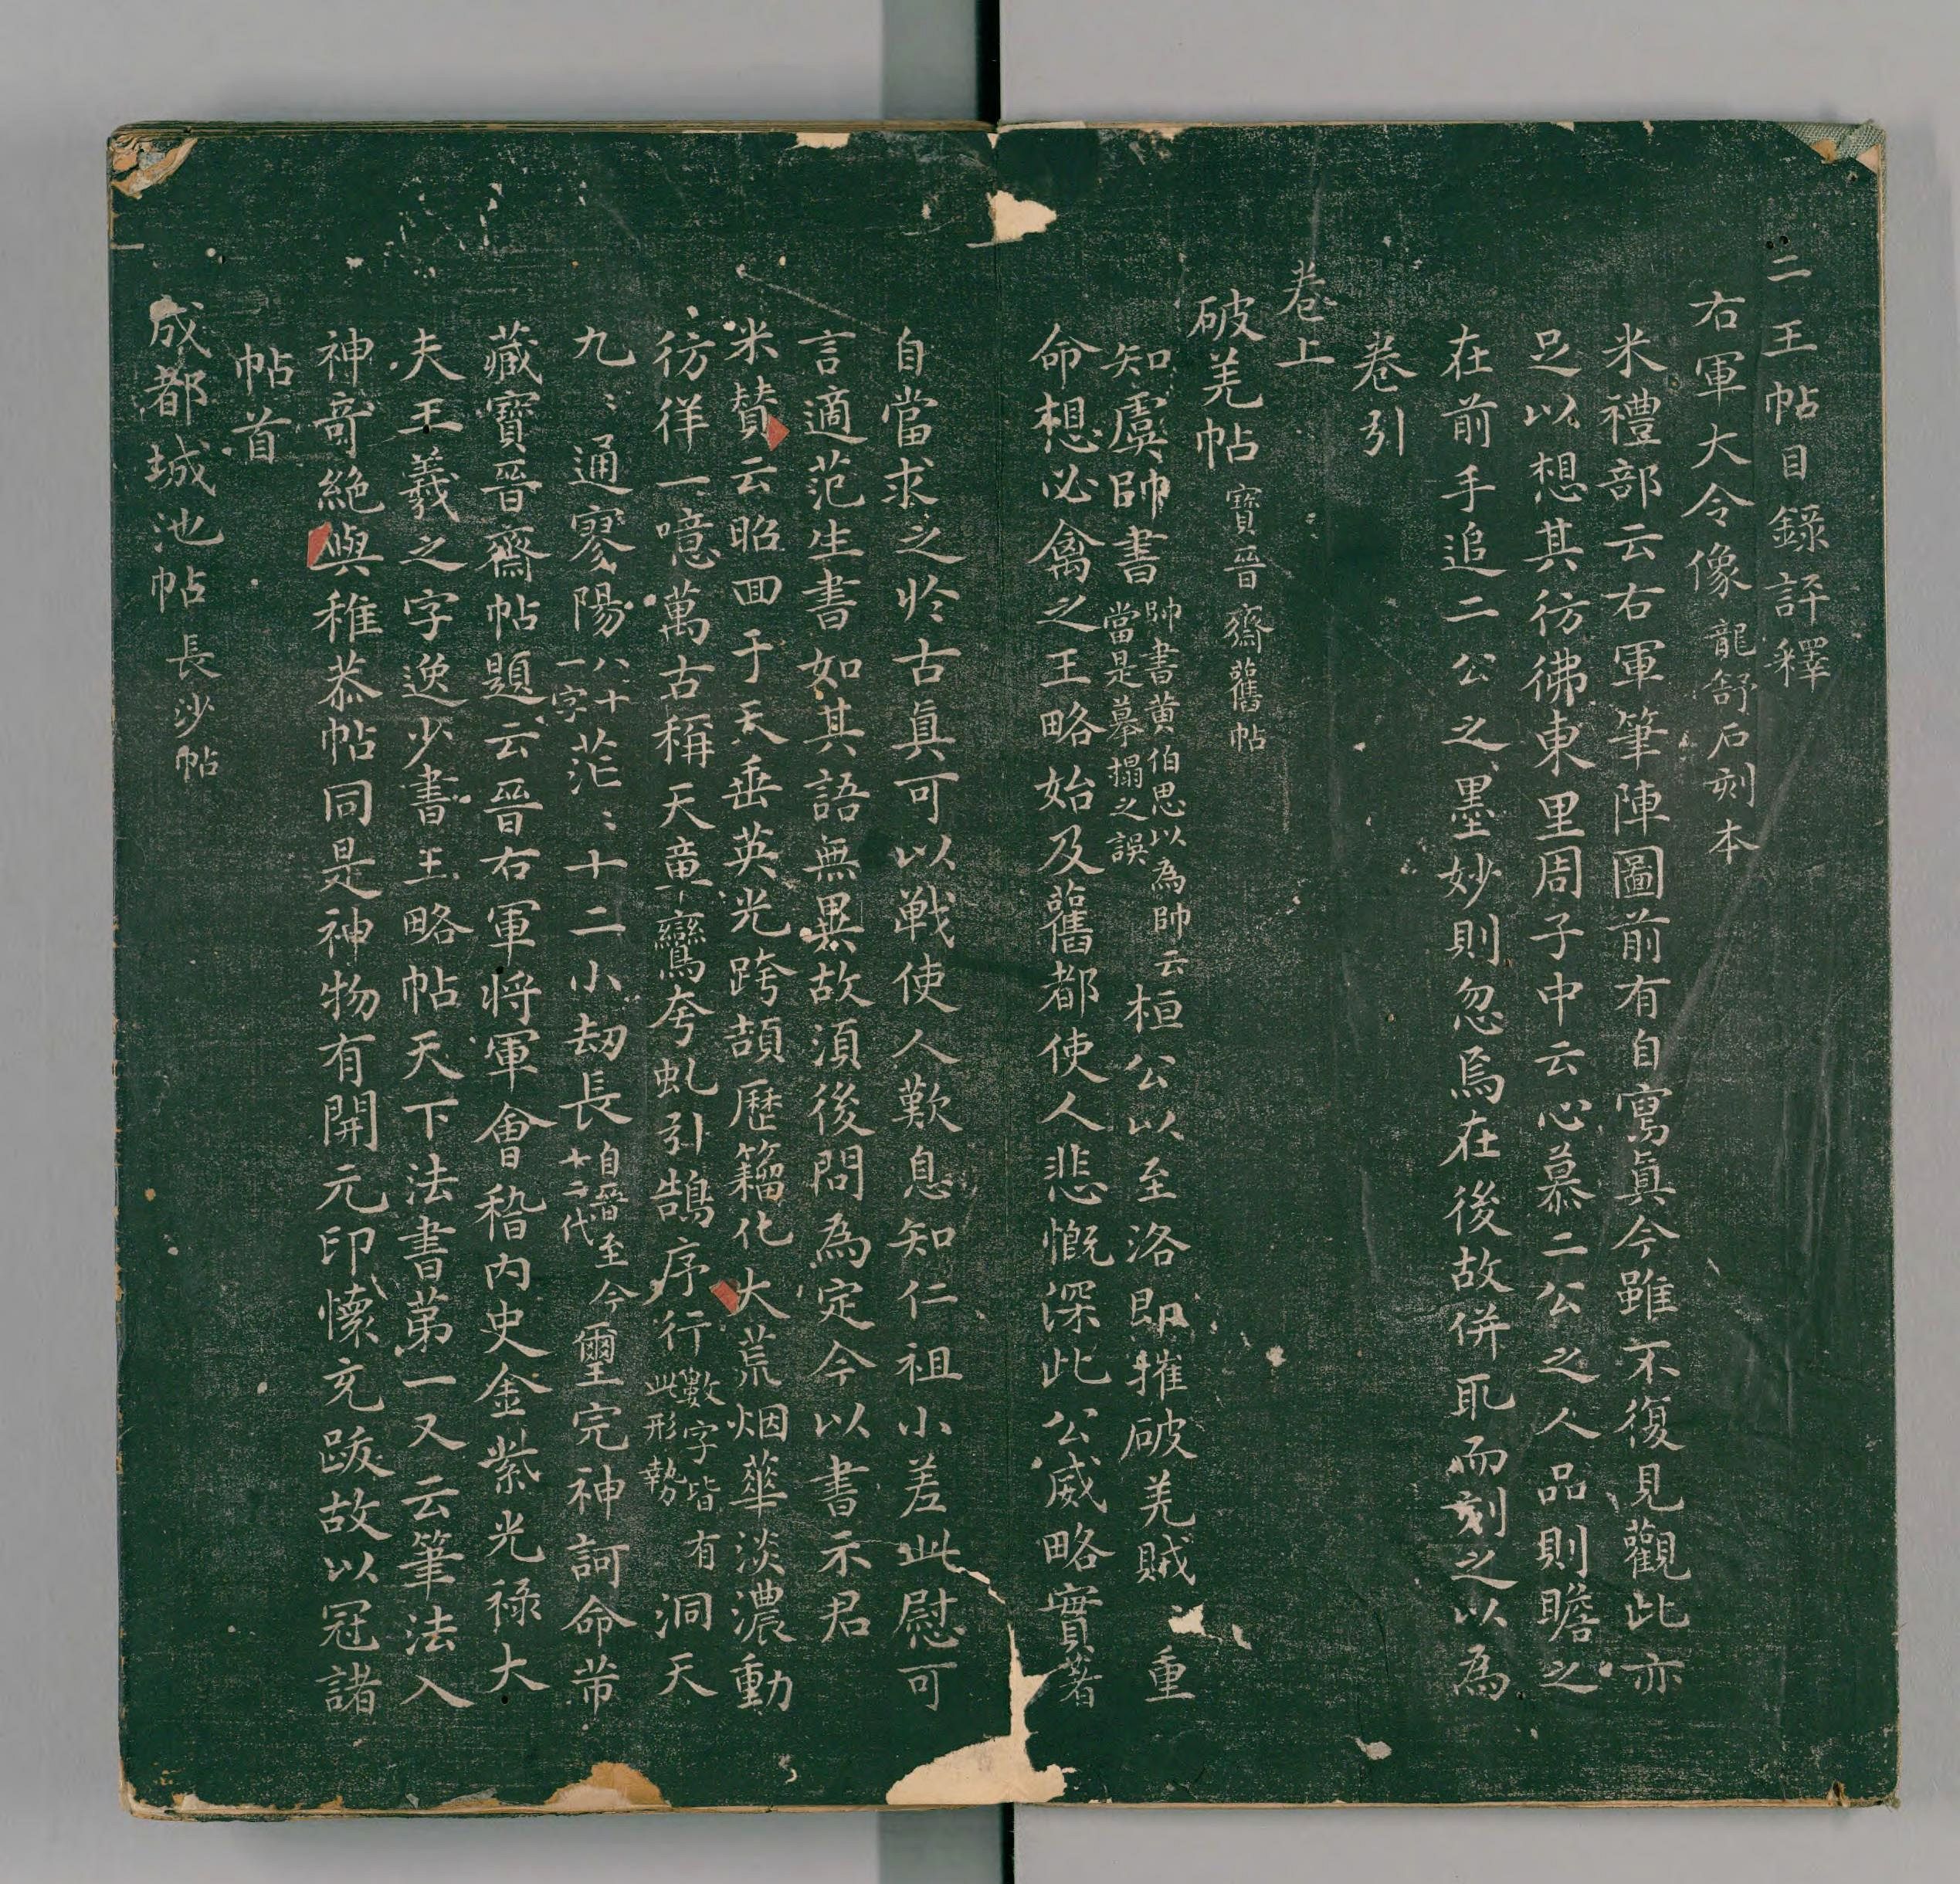 二王帖目錄評釋
右軍大令像 龍舒石刻本
米禮部云右軍筆陣圖前有自寫真今雖不復見觀此亦
足以想其彷彿東里周子中云心慕二公之人品則瞻之
在前手追二公之墨妙則忽焉在後故併取而刻之以為
卷引
卷上
破羌帖 寶晉齋舊帖
知虞帥書 帥書黃伯思以為帥云當是摹搨之誤 桓公以至洛即摧破羌賊 重
命想必禽之王略始及舊都使人悲慨深此公威略實著
自當求之於古真可以戰使人歎息知仁祖小差此慰可
言適范生書如其語無異故須後問為定今以書示君
米贊云昭回于天垂英光跨頡歷籀化大荒烟華淡濃動
彷徉一噫萬古稱天章鸞夸虬引鵠序行 數字皆有此形勢 洞天
九〻通寥陽 八十一字 茫〻十二小劫長 自晉至今十二代 璽完神訶命芾
藏寶晉齋帖題云晉右軍將軍會稽內史金紫光祿大
夫王羲之字逸少書王略帖天下法書第一又云筆法入
神奇絕與稚恭帖同是神物有開元印懷充跋故以冠諸
帖首
成都城池帖 長沙帖